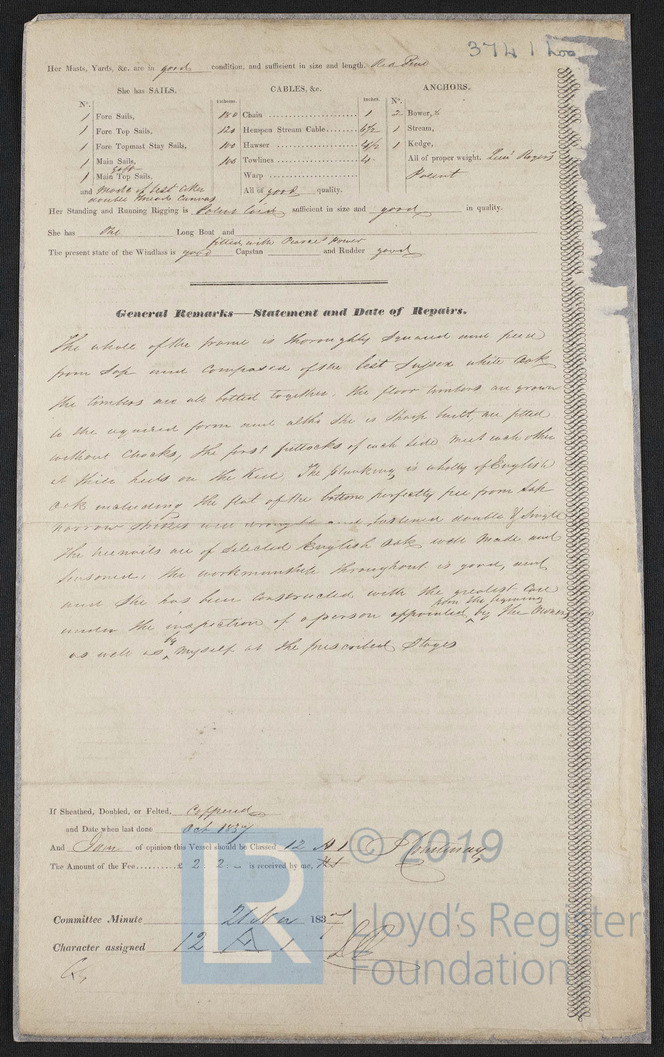 374
Her Masts, Yards, &c. are in good condition, and sufficient in size and length. Red Pine
She has SAILS.
CABLES, &c.
ANCHORS.
Nº. Fathoms. Inches. Nº.
1 Fore Sails, Chain 1 2 Bower,
1 Fore Top Sails, 120 Hempen Stream Cable 6½ 1 Stream,
1 Fore Topmast Stay Sails, 100 Hawser 4½ 1 Kedge,
1 Main Sails, 100 Towlines 4 All of proper weight.
1 Main Top Sails, Warp Patent
and made of best All of good quality.
double thread Canvas
Her Standing and Running Rigging is Patent Cord sufficient in size and good in quality.
She has One Long Boat and
fitted with Power
The present state of the Windlass is good Capstan and Rudder good
General Remarks—Statement and Date of Repairs.
The whole of the frame is thoroughly squared and free
from sap and composed of the best Sussex white Oak
the timbers are all bolted together, the floor timbers are grown
to the required form and altho she is sharp built, are fitted
without Chocks, the first futtocks of each side meet each other
at their heels on the Keel The planking is wholly of English
Oak including the flat of the bottom perfectly free from Sap
narrow strakes well wrought and fastened double & single
The treenails are of selected English Oak well made and
seasoned, the workmanship throughout is good, and
and she has been constructed with the greatest care
from the beginning
under the inspection of a person appointed by the Owners
as well as by myself at the prescribed Stages
If Sheathed, Doubled, or Felted, Coppered
and Date when last done Oct 1837
And I am of opinion this Vessel should be Classed 12 A 1
The Amount of the Fee £ 2 2 – is received by me,
Committee Minute 21 Nov 1837
Character assigned 12 A 1
LR
© 2019
Lloyd's Register
Foundation